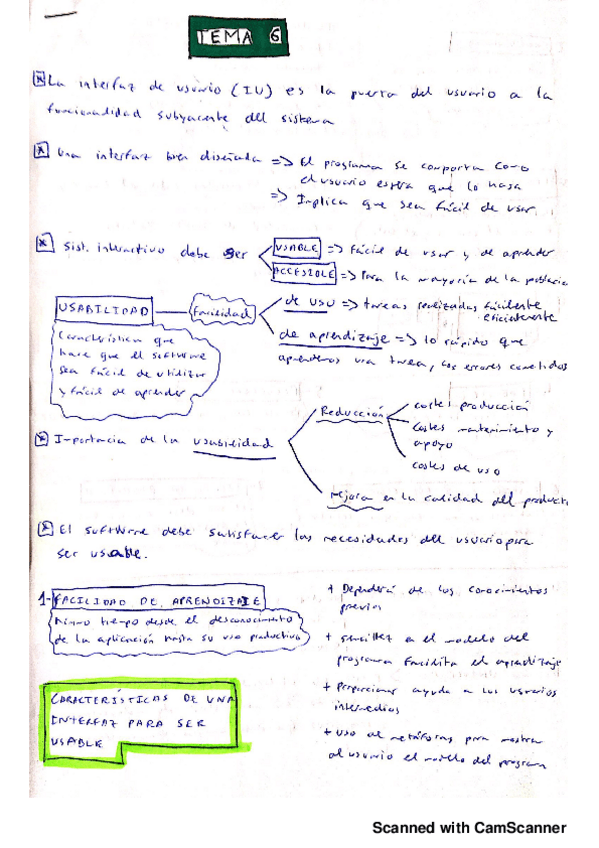 TEMA 6
La interfaz de usuario (IU) es la puerta del usuario a la
funcionalidad subyacente del sistema
Una interfaz bien diseñada => El programa se comporta como
el usuario espera que lo haga
=> Implica que sea fácil de usar
Sist. interactivo debe ser
USABLE => Fácil de usar y de aprender
ACCESIBLE => Para la mayoría de la población
USABILIDAD — Facilidad
de uso => tareas realizadas fácilmente
eficientemente
de aprendizaje => lo rápido que
aprendemos una tarea, los errores cometidos
Característica que
hace que el software
sea fácil de utilizar
y fácil de aprender
Importancia de la usabilidad
Reducción
costes producción
costes mantenimiento y
apoyo
costes de uso
mejora en la calidad del producto
El software debe satisfacer las necesidades del usuario para
ser usable.
1- FACILIDAD DE APRENDIZAJE
Mínimo tiempo desde el desconocimiento
de la aplicación hasta su uso productivo
+ Dependerá de los conocimientos
previos
+ sencillez en el modelo del
programa facilita el aprendizaje
+ Proporcionar ayuda a los usuarios
intermedios
+ uso de metáforas para mostrar
al usuario el modelo del programa
CARACTERÍSTICAS DE UNA
INTERFAZ PARA SER
USABLE
Scanned with CamScanner